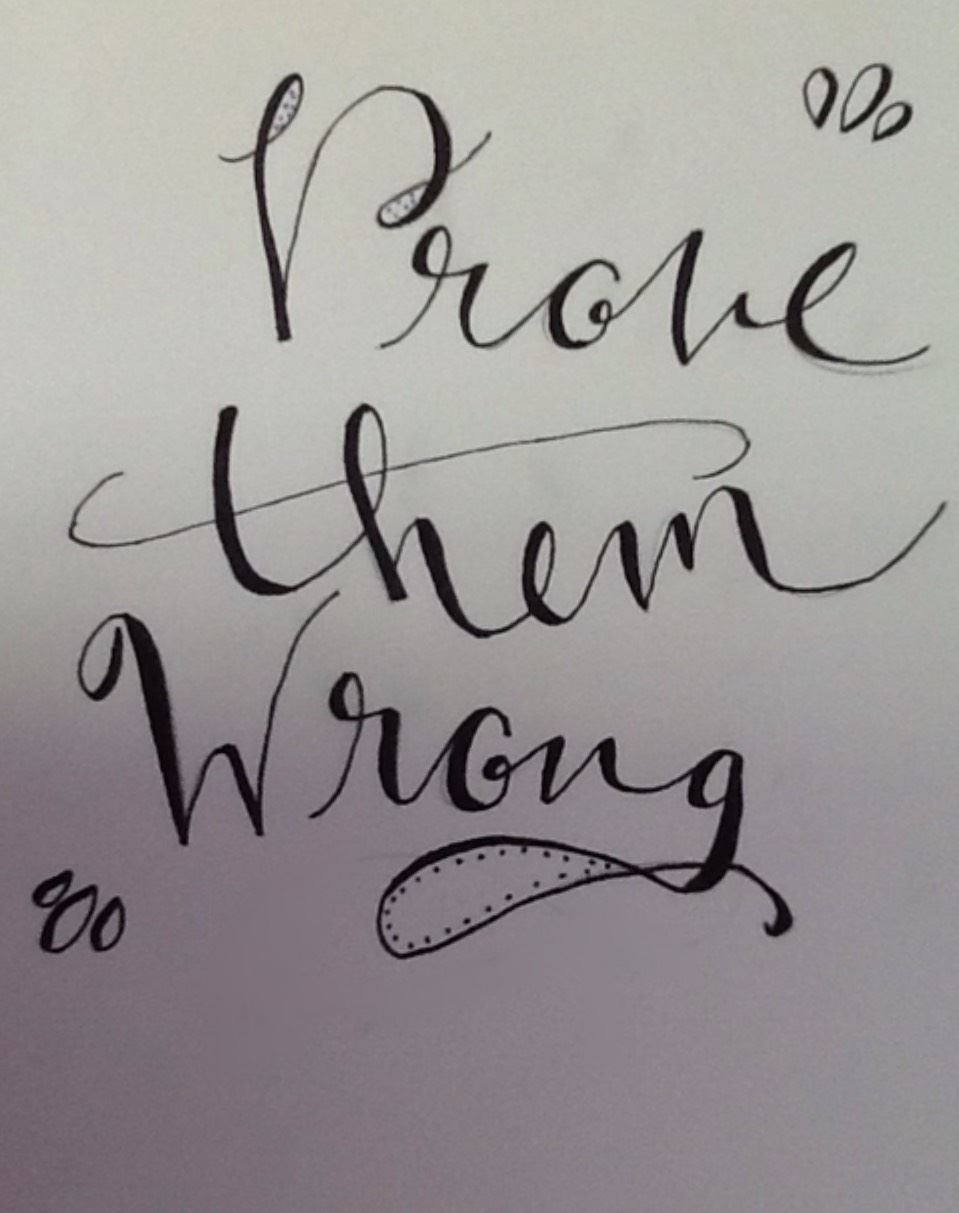 Prove
them
Wrong